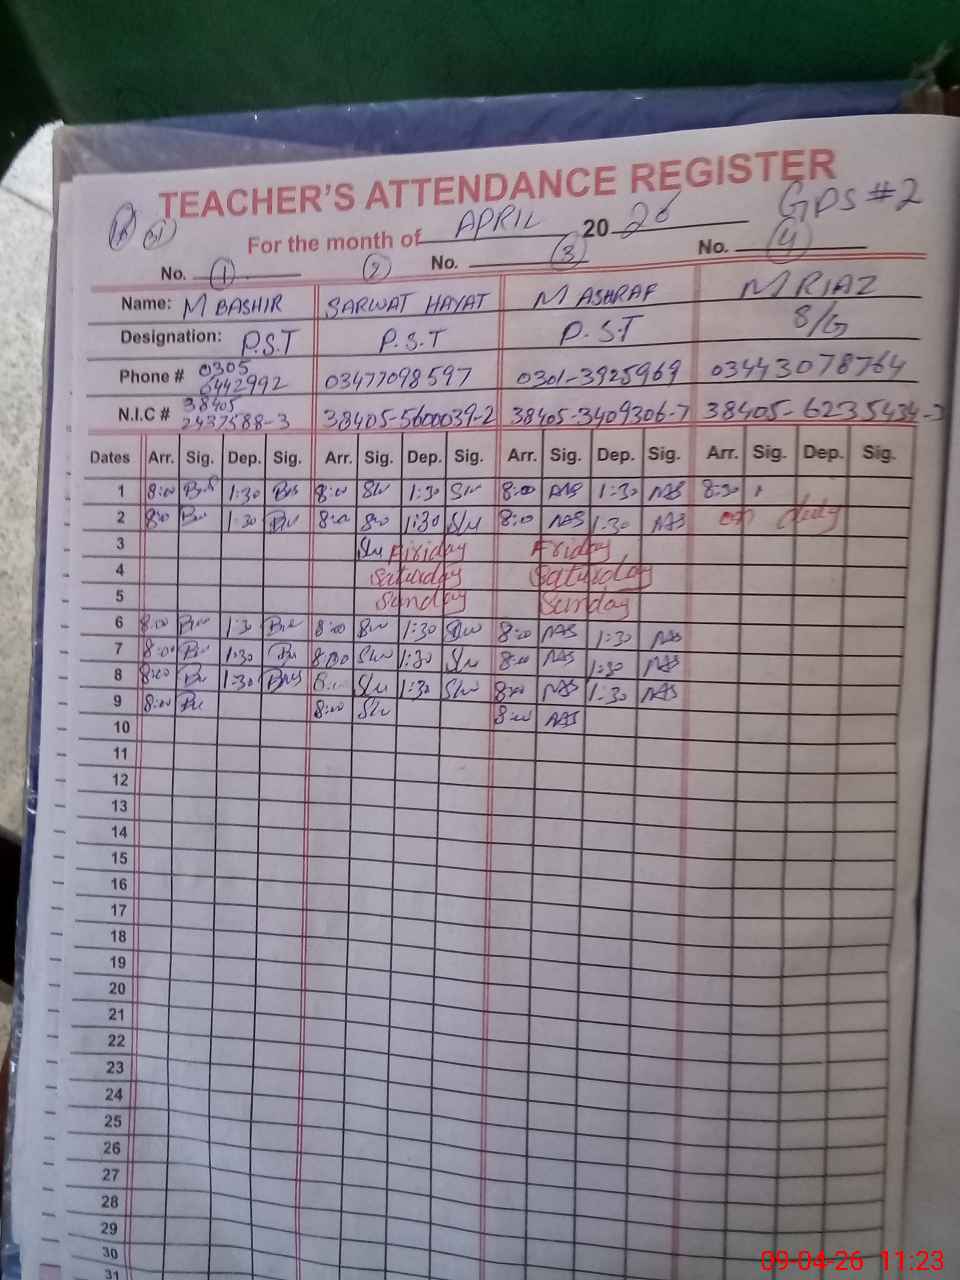 TEACHER'S ATTENDANCE REGISTER
GPS #2
For the month of APRIL 20 26
No. 1 2 No. 3 No. 4
Name: M BASHIR SARWAT HAYAT M ASHRAF M RIAZ
Designation: P.S.T P.S.T P.S.T S/G
Phone # 0305 6442992 03477098597 0301-3925969 03443078764
N.I.C # 38405 2437588-3 38405-5600039-2 38405-3409306-7 38405-6235434-
Dates Arr. Sig. Dep. Sig. Arr. Sig. Dep. Sig. Arr. Sig. Dep. Sig. Arr. Sig. Dep. Sig.
1 8:00 1:30 8:00 1:30 8:00 1:30 8:30
2 8:00 1:30 8:00 1:30 8:00 1:30 on duty
3 Friday Friday
4 Saturday Saturday
5 Sunday Sunday
6 8:00 1:30 8:00 1:30 8:00 1:30
7 8:00 1:30 8:00 1:30 8:00 1:30
8 8:00 1:30 1:30 8:00 1:30
9 8:00 8:00 8:00
10
11
12
13
14
15
16
17
18
19
20
21
22
23
24
25
26
27
28
29
30
31
09-04-26 11:23